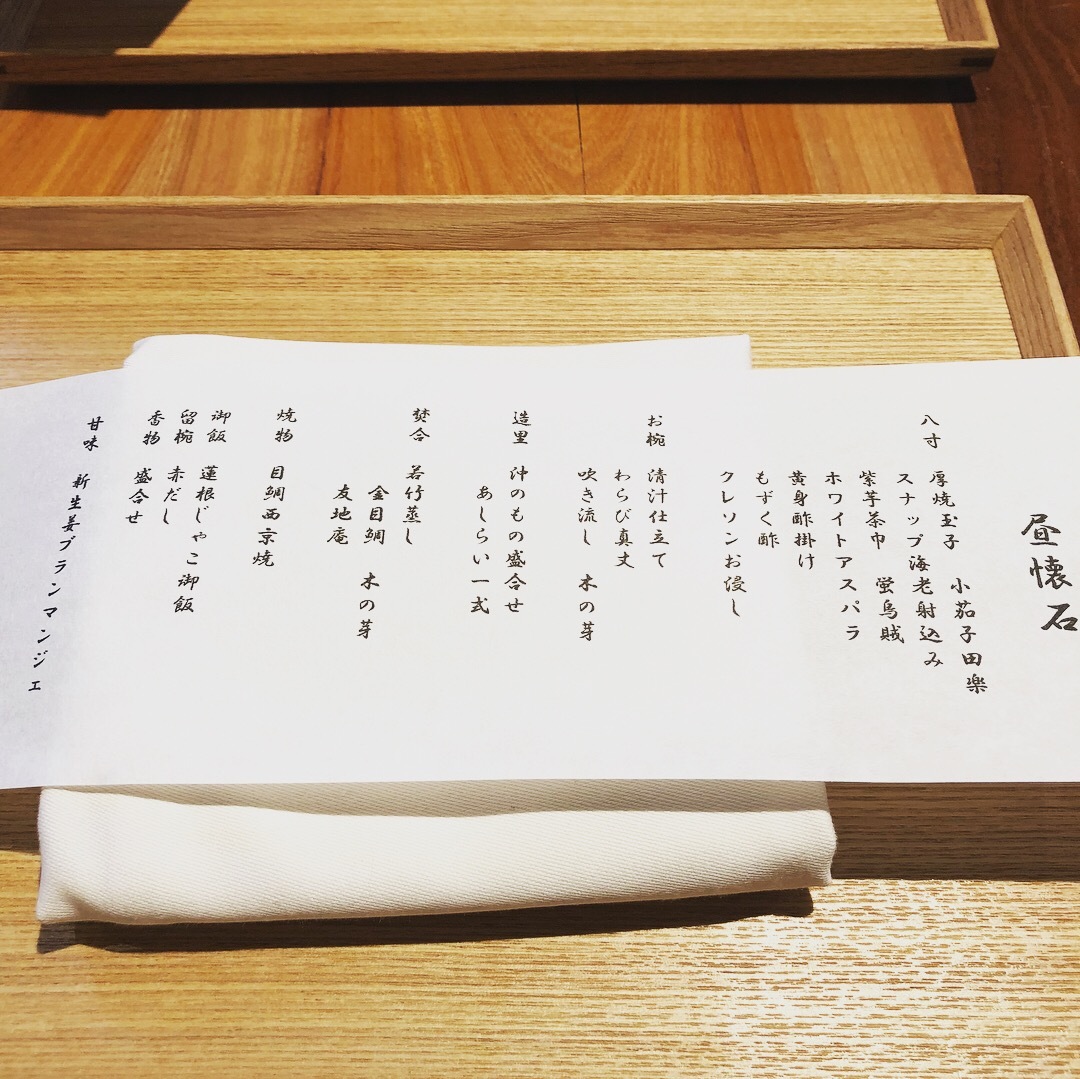 昼懐石
八寸 厚焼玉子 小茄子田楽
スナップ海老射込み
紫芋茶巾 蛍烏賊
ホワイトアスパラ
黄身酢掛け
もずく酢
クレソンお浸し
お椀 清汁仕立て
わらび真丈
吹き流し 木の芽
造里 沖のもの盛合せ
あしらい一式
焚合 若竹蒸し
金目鯛 木の芽
友地庵
焼物 目鯛西京焼
御飯 蓮根じゃこ御飯
留椀 赤だし
香物 盛合せ
甘味 新生姜ブランマンジェ